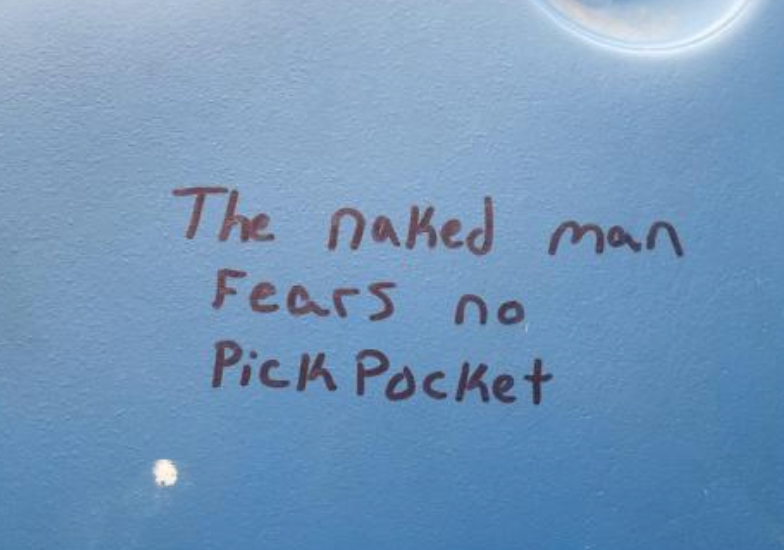 The naked man
Fears no
Pick Pocket